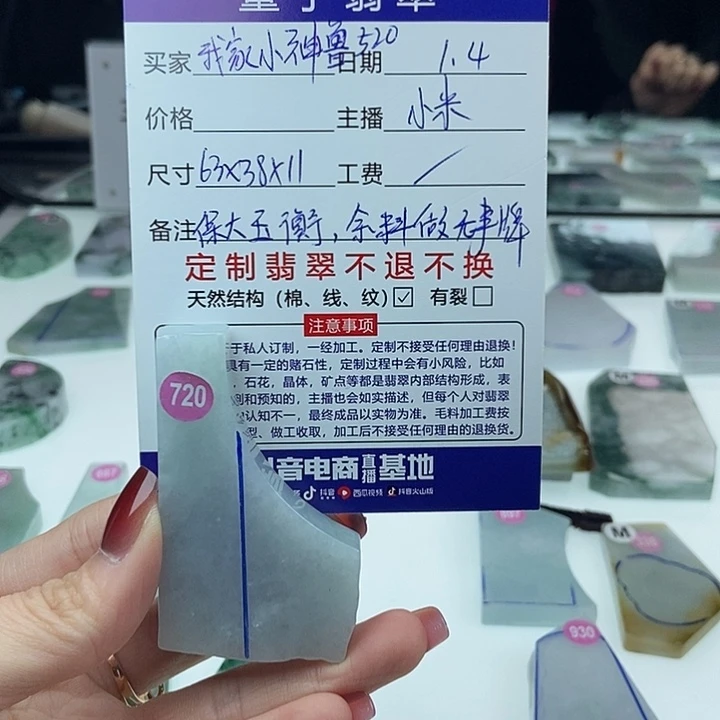 量子翡翠
买家 我家小神兽520 日期 1.4
价格 主播 小米
尺寸 63x38x11 工费 /
备注 保大玉衡,余料做无事牌
定制翡翠不退不换
天然结构（棉、线、纹）☑ 有裂□
注意事项
于私人订制，一经加工。定制不接受任何理由退换!
具有一定的赌石性，定制过程中会有小风险，比如
，石花，晶体，矿点等都是翡翠内部结构形成，表
测和预知的，主播也会如实描述，但每个人对翡翠
认知不一，最终成品以实物为准。毛料加工费按
型、做工收取，加工后不接受任何理由的退换货。
抖音电商直播基地
抖音 西瓜视频 抖音火山版
720
M
930